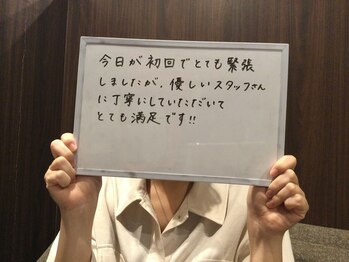 今日が初回でとても緊張
しましたが、優しいスタッフさん
に丁寧にしていただいて
とても満足です!!